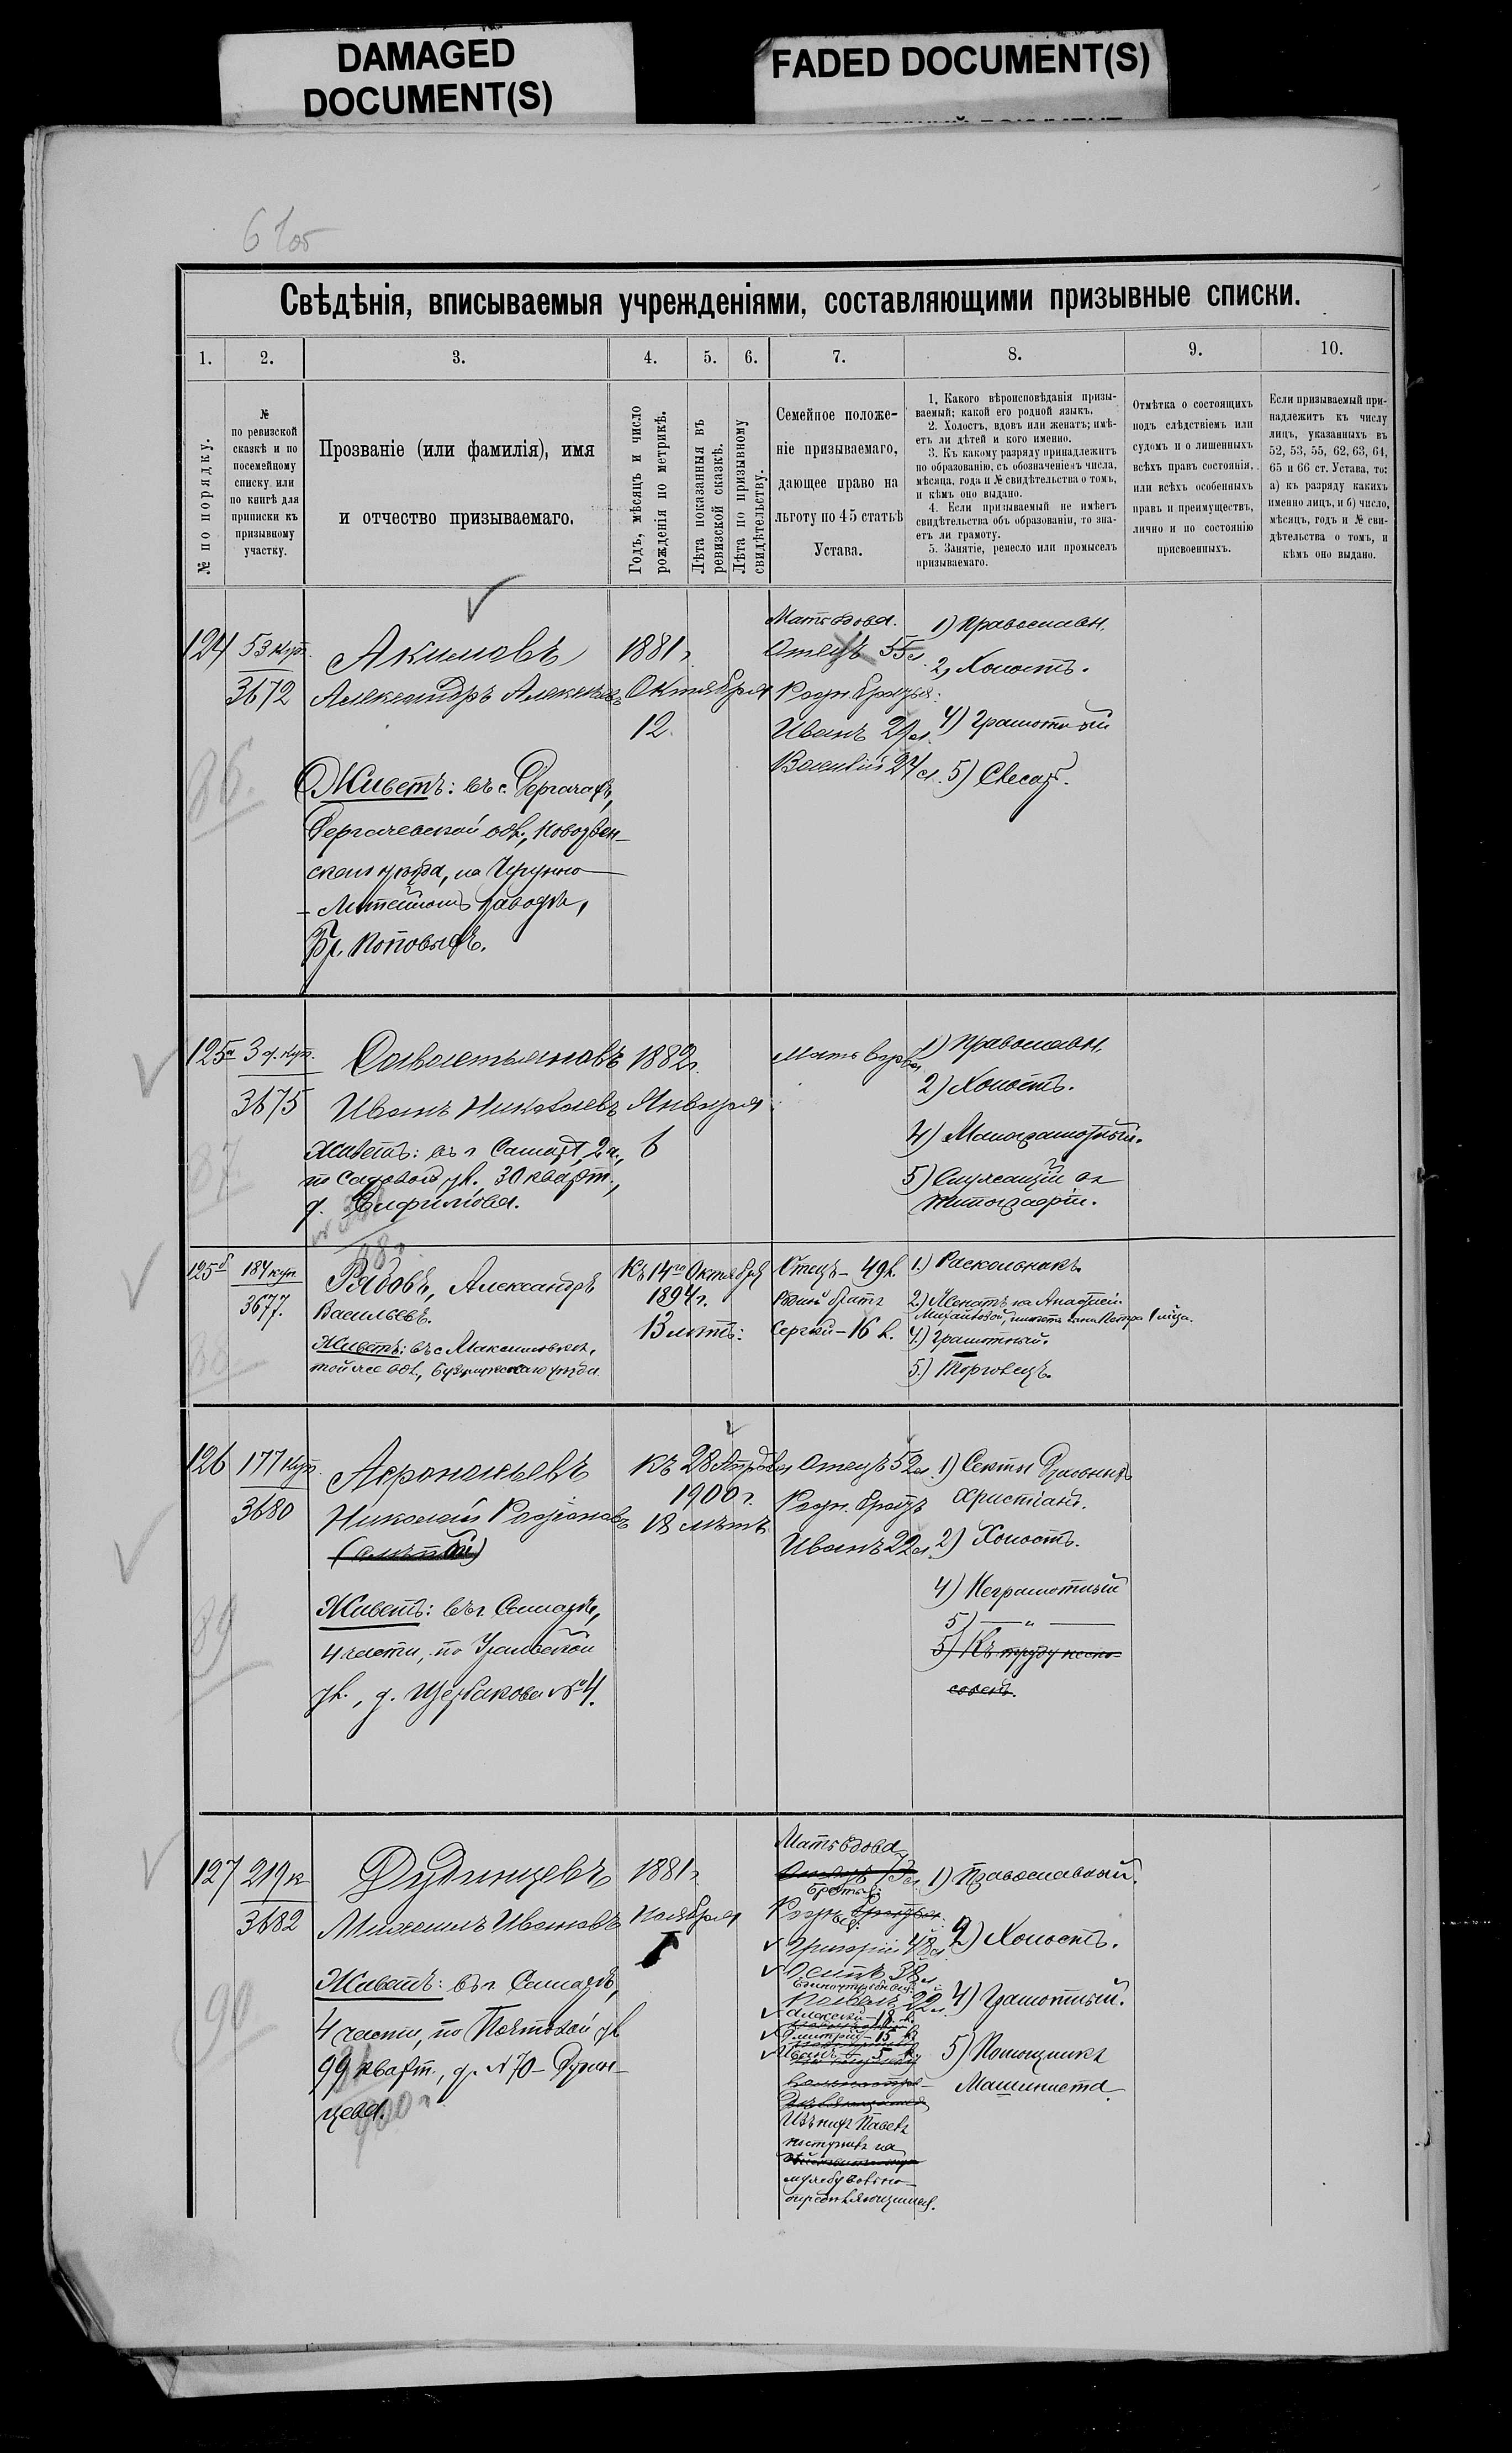 DAMAGED
DOCUMENT(S)
FADED DOCUMENT(S)
61об
Свѣдѣнія, вписываемыя учрежденіями, составляющими призывные списки.
1. 2. 3. 4. 5. 6. 7. 8. 9. 10.
№ по порядку.
№
по ревизской
сказкѣ и по
посемейному
списку или
по книгѣ для
приписки къ
призывному
участку.
Прозваніе (или фамилія), имя
и отчество призываемаго.
Годъ, мѣсяцъ и число
рожденія по метрикѣ.
Лѣта показанныя въ
ревизской сказкѣ.
Лѣта по призывному
свидѣтельству.
Семейное положе-
ніе призываемаго,
дающее право на
льготу по 45 статьѣ
Устава.
1. Какого вѣроисповѣданія призы-
ваемый; какой его родной языкъ.
2. Холостъ, вдовъ или женатъ; имѣ-
етъ ли дѣтей и кого именно.
3. Къ какому разряду принадлежитъ
по образованію, съ обозначеніемъ числа,
мѣсяца, года и № свидѣтельства о томъ,
и кѣмъ оно выдано.
4. Если призываемый не имѣетъ
свидѣтельства объ образованіи, то зна-
етъ ли грамоту.
5. Занятіе, ремесло или промыселъ
призываемаго.
Отмѣтка о состоящихъ
подъ слѣдствіемъ или
судомъ и о лишенныхъ
всѣхъ правъ состоянія,
или всѣхъ особенныхъ
правъ и преимуществъ,
лично и по состоянію
присвоенныхъ.
Если призываемый при-
надлежитъ къ числу
лицъ, указанныхъ въ
52, 53, 55, 62, 63, 64,
65 и 66 ст. Устава, то:
а) къ разряду какихъ
именно лицъ, и б) число,
мѣсяцъ, годъ и № сви-
дѣтельства о томъ, и
кѣмъ оно выдано.
124
53 куп.
3672
86.
Акимовъ
Александръ Алексѣевъ
Живетъ: въ с. Дергачахъ,
Дергачевской вол., Новоузен-
скаго уѣзда, на Чугунно
-Литейномъ заводѣ,
Бр. Поповыхъ.
1881 г.
Октября
12.
Мать вдова.
Отецъ 55 л.
Родн. братья:
Иванъ 29 л.
Василій 24 л.
1) Православн.
2) Холостъ.
4) Грамотный
5) Слесарь.
125а
3675
87.
Севастьяновъ
Иванъ Николаевъ
Живетъ: въ г. Самарѣ, 2 ч.,
по Садовой ул., 30 кварт.,
1882 г.
Января
6
Мать вдова
1) Православн.
2) Холостъ.
4) Малограмотный.
5) Служащій въ
типографіи.
125б
184 куп
3677.
Рябовъ, Александръ
Васильевъ.
Живетъ: въ с. Максимовкѣ,
той же вол., Бузулукскаго уѣзда
Къ 14го Октября
1894 г.
13 лѣтъ:
Отецъ - 49 л.
Родной братъ
Сергѣй - 16 л.
1.) Раскольникъ
4.) Грамотный.
5.) Торговецъ.
126
177 куп.
3680
89
Афонасьевъ
Николай Родіоновъ
Живетъ: въ г. Самарѣ,
4 части, по Уральской
ул., д. Щербакова № 4.
къ 28 Апрѣля
1900 г.
18 лѣтъ
Отецъ 52 л.
Родн. братъ
Иванъ 22 л.
1) Секты Духовныхъ
Христіанъ.
2) Холостъ.
4) Неграмотный
5) — " —
5) Къ труду неспо-
собенъ.
127
219 к
3682
90
Дудинцевъ
Михаилъ Ивановъ
Живетъ: въ г. Самарѣ,
4 части, по Почтовой ул
99 кварт., д. № 70 - Дудин-
цева.
1881 г.
Ноября
Мать вдова
братья:
Григорій 48 л
Осипъ 38 л
Павелъ 22 л
Алексѣй - 18 л.
Дмитрій - 15 л
Иванъ - 5 л.
Изъ нихъ Павелъ
поступилъ на
службу вольно-
опредѣляющимся.
1) Православный.
2) Холостъ.
4) Грамотный.
5) Помощникъ
Машиниста.